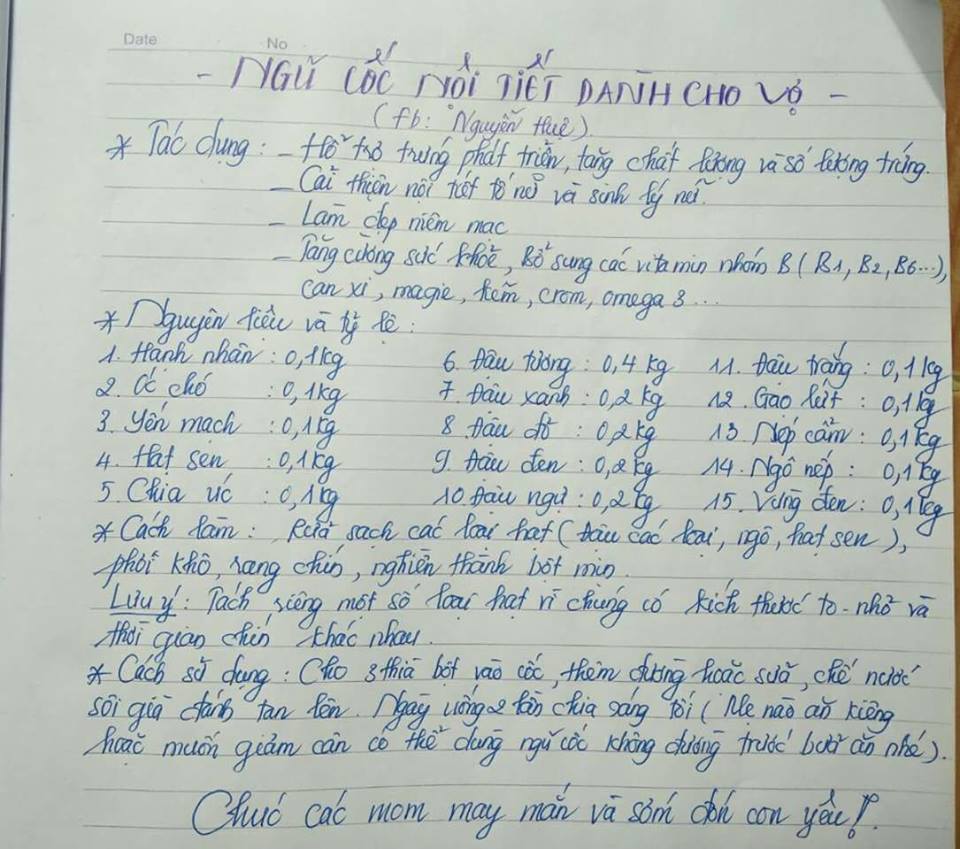 Date No
- NGŨ CỐC NỘI TIẾT DÀNH CHO VỢ -
(fb: Nguyễn Huê).
* Tác dụng: - Hỗ trợ trứng phát triển, tăng chất lượng và số lượng trứng.
- Cải thiện nội tiết tố nữ và sinh lý nữ.
- Làm đẹp niêm mạc
- Tăng cường sức khỏe, Bổ sung các vitamin nhóm B (B1, B2, B6...),
can xi, magie, kẽm, crom, omega 3...
* Nguyên liệu và tỷ lệ:
1. Hạnh nhân: 0,1kg 6. Đậu tương: 0,4 kg 11. Đậu trắng: 0,1kg
2. Óc chó: 0,1kg 7. Đậu xanh: 0,2 kg 12. Gạo lứt: 0,1kg
3. Yến mạch: 0,1kg 8. Đậu đỏ: 0,2kg 13. Nếp cẩm: 0,1kg
4. Hạt sen: 0,1kg 9. Đậu đen: 0,2kg 14. Ngô nếp: 0,1kg
5. Chia úc: 0,1kg 10. Đậu ngự: 0,2kg 15. Vừng đen: 0,1kg
* Cách làm: Rửa sạch các loại hạt (Đậu các loại, ngô, hạt sen),
phơi khô, rang chín, nghiền thành bột mịn.
Lưu ý: Tách riêng một số loại hạt vì chúng có kích thước to-nhỏ và
thời gian chín khác nhau.
* Cách sử dụng: Cho 3 thìa bột vào cốc, thêm đường hoặc sữa, chế nước
sôi già đánh tan lên. Ngày uống 2 lần chia sáng tối (Mẹ nào ăn kiêng
hoặc muốn giảm cân có thể dùng ngũ cốc không đường trước bữa ăn nhé).
Chúc các mom may mắn và sớm đón con yêu!